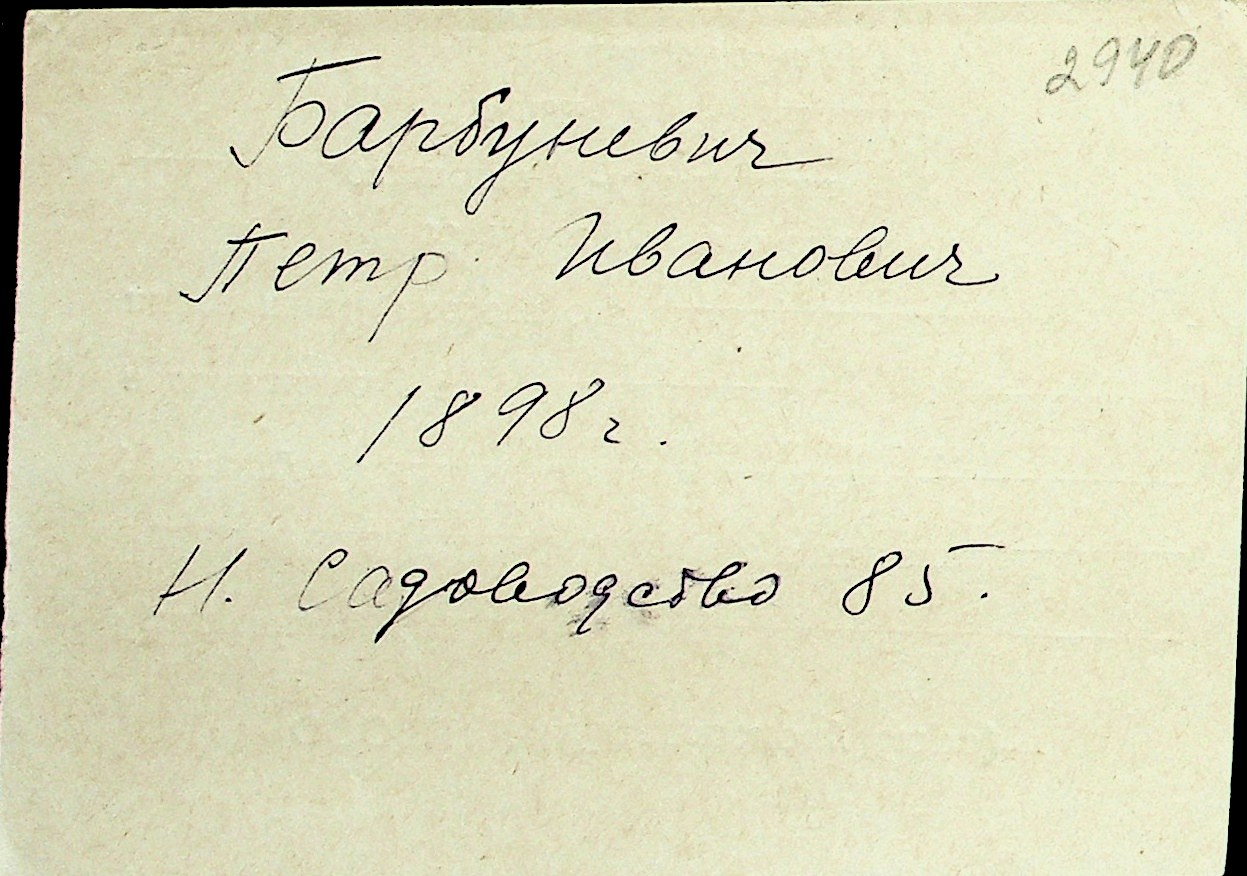 2940
Барбуневич
Петр Иванович
1898г.
Н. Садоводство 85.